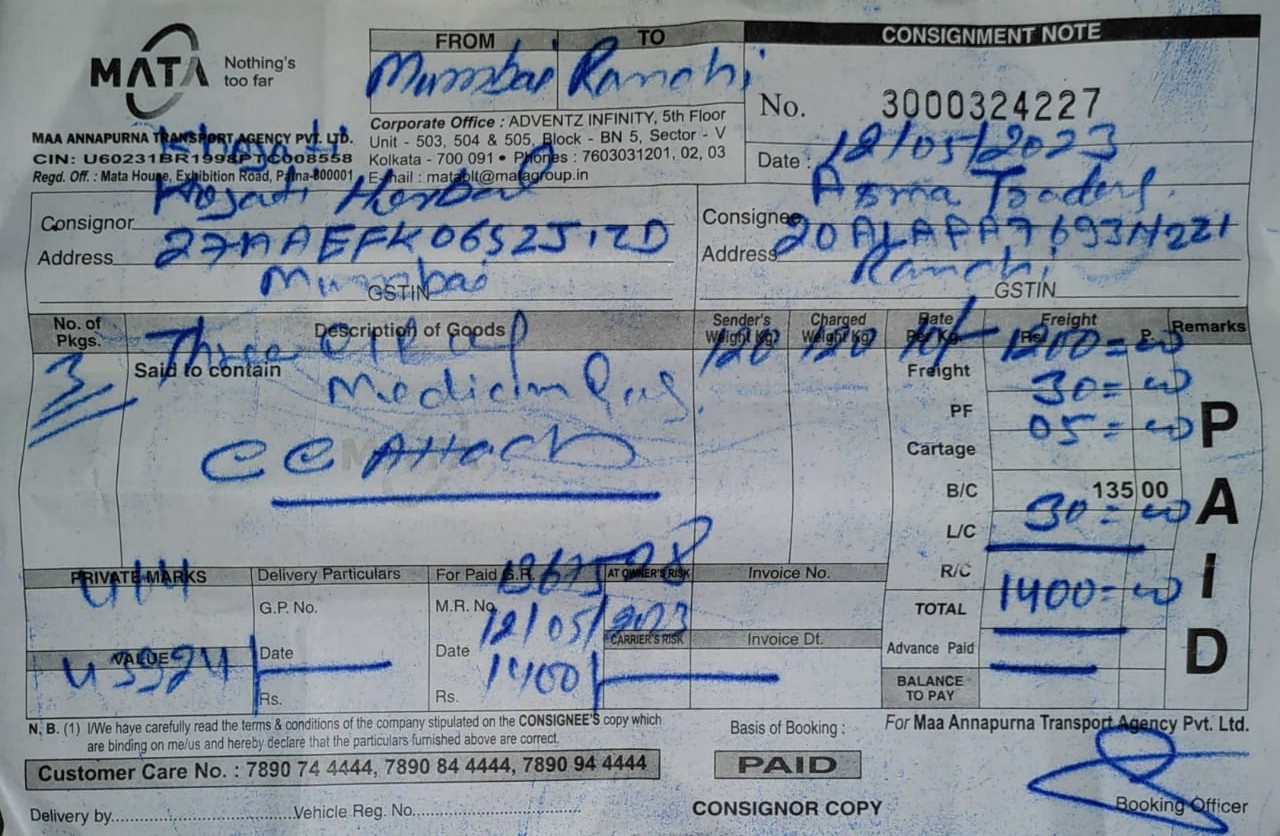 MATA Nothing's
too far
FROM TO
Mumbai Ranchi
CONSIGNMENT NOTE
No. 3000324227
Date : 12/05/2023
MAA ANNAPURNA TRANSPORT AGENCY PVT. LTD.
CIN: U60231BR1998PTC008558
Regd. Off. : Mata House, Exhibition Road, Patna-800001
Corporate Office : ADVENTZ INFINITY, 5th Floor
Unit - 503, 504 & 505, Block - BN 5, Sector - V
Kolkata - 700 091 • Phones : 7603031201, 02, 03
E-mail : matablt@matagroup.in
Consignor Herbal
Address 27AAEFK0652J1ZD
Mumbai
GSTIN
Consignee Asma Traders
Address 20ALAPA7693H2Z1
Ranchi
GSTIN
No. of
Pkgs.
Description of Goods
Sender's
Weight Kg)
Charged
Weight Kg)
Rate
Per Kg.
Freight
Rs. P.
Remarks
3
Said to contain
Three
120 120 10/- 1200=00
Freight
Medicine
30=00
PF
05=00
Cartage
CC Attach
B/C 135 00
L/C 30=00
R/C
TOTAL 1400=00
Advance Paid
BALANCE
TO PAY
PAID
PRIVATE MARKS
VALUE
43924/
Delivery Particulars
G.P. No.
Date
Rs.
For Paid G.R.
M.R. No.
Date 12/05/2023
Rs. 1400/
AT OWNER'S RISK
CARRIER'S RISK
Invoice No.
Invoice Dt.
N. B. (1) I/We have carefully read the terms & conditions of the company stipulated on the CONSIGNEE'S copy which
are binding on me/us and hereby declare that the particulars furnished above are correct.
Customer Care No. : 7890 74 4444, 7890 84 4444, 7890 94 4444
Delivery by......................Vehicle Reg. No......................
Basis of Booking :
PAID
CONSIGNOR COPY
For Maa Annapurna Transport Agency Pvt. Ltd.
Booking Officer